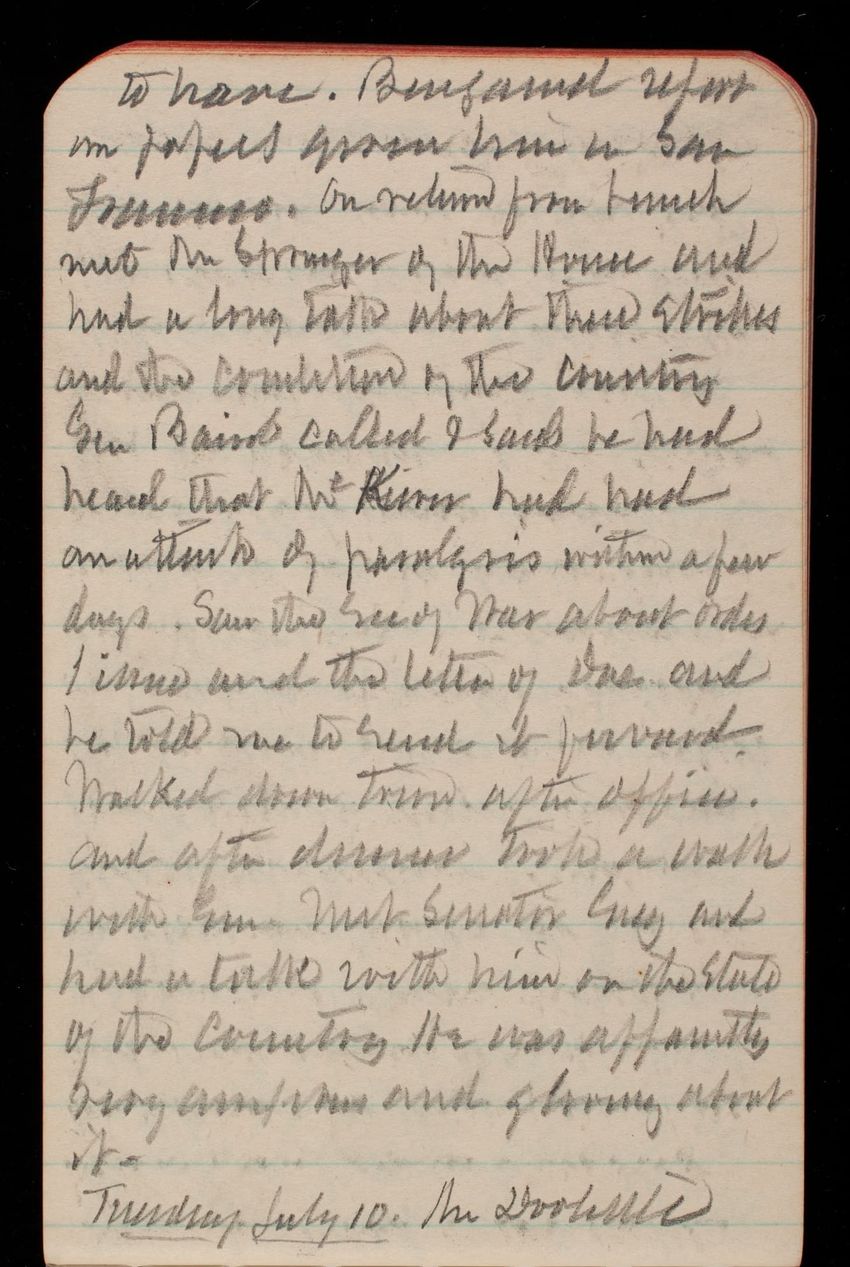 to have. Bengaurd report
on papers given him in San
Francisco. On return from lunch
met Mr Springer of the House and
had a long talk about these strikes
and the condition of the country
Gen Baird called & said he had
heard that Mr Kiver had had
an attack of paralysis within a few
days. Saw the Sec of War about orders
I issue and the letter of Doe and
he told me to send it forward.
Walked down town after office.
and after dinner took a walk
with Em. Met Senator Gray and
had a talk with him on the State
of the Country He was apparently
very anxious and gloomy about
it-
Tuesday July 10. Mr Doolittle